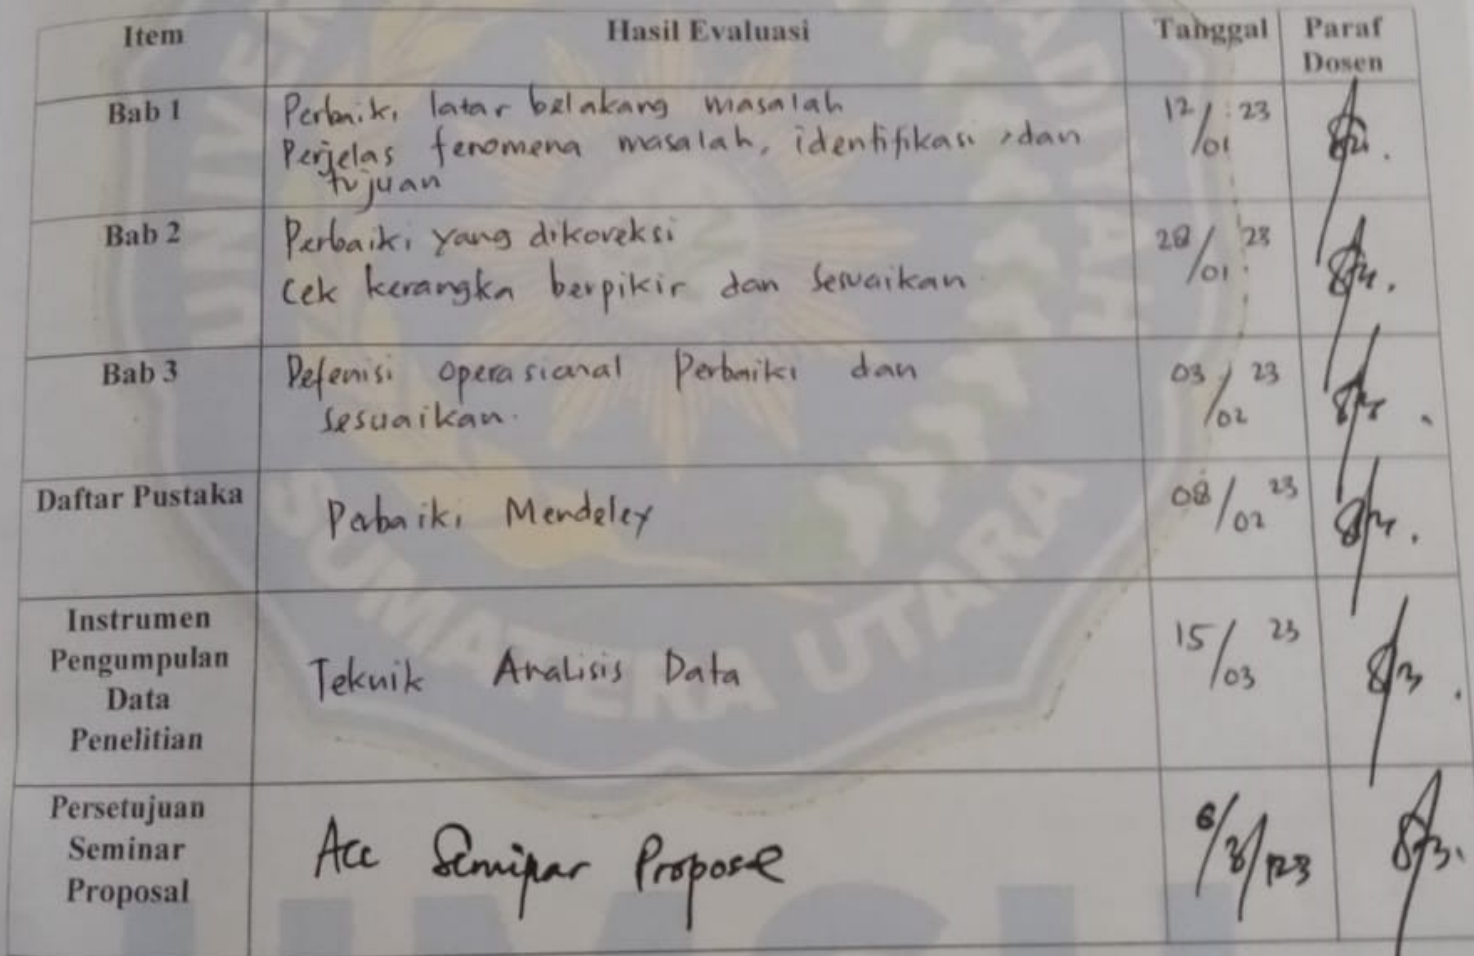 Item Hasil Evaluasi Tanggal Paraf
Dosen
Bab 1 Perbaiki latar belakang masalah 12/01 23
Perjelas fenomena masalah, identifikasi, dan
tujuan
Bab 2 Perbaiki yang dikoreksi 28/01 23
Cek kerangka berpikir dan sesuaikan
Bab 3 Defenisi operasional Perbaiki dan 03/02 23
sesuaikan.
Daftar Pustaka Perbaiki Mendeley 08/02 23
Instrumen
Pengumpulan
Data
Penelitian
Teknik Analisis Data 15/03 23
Persetujuan
Seminar
Proposal
Acc Seminar Proposal
SUMATERA UTARA
UMSU